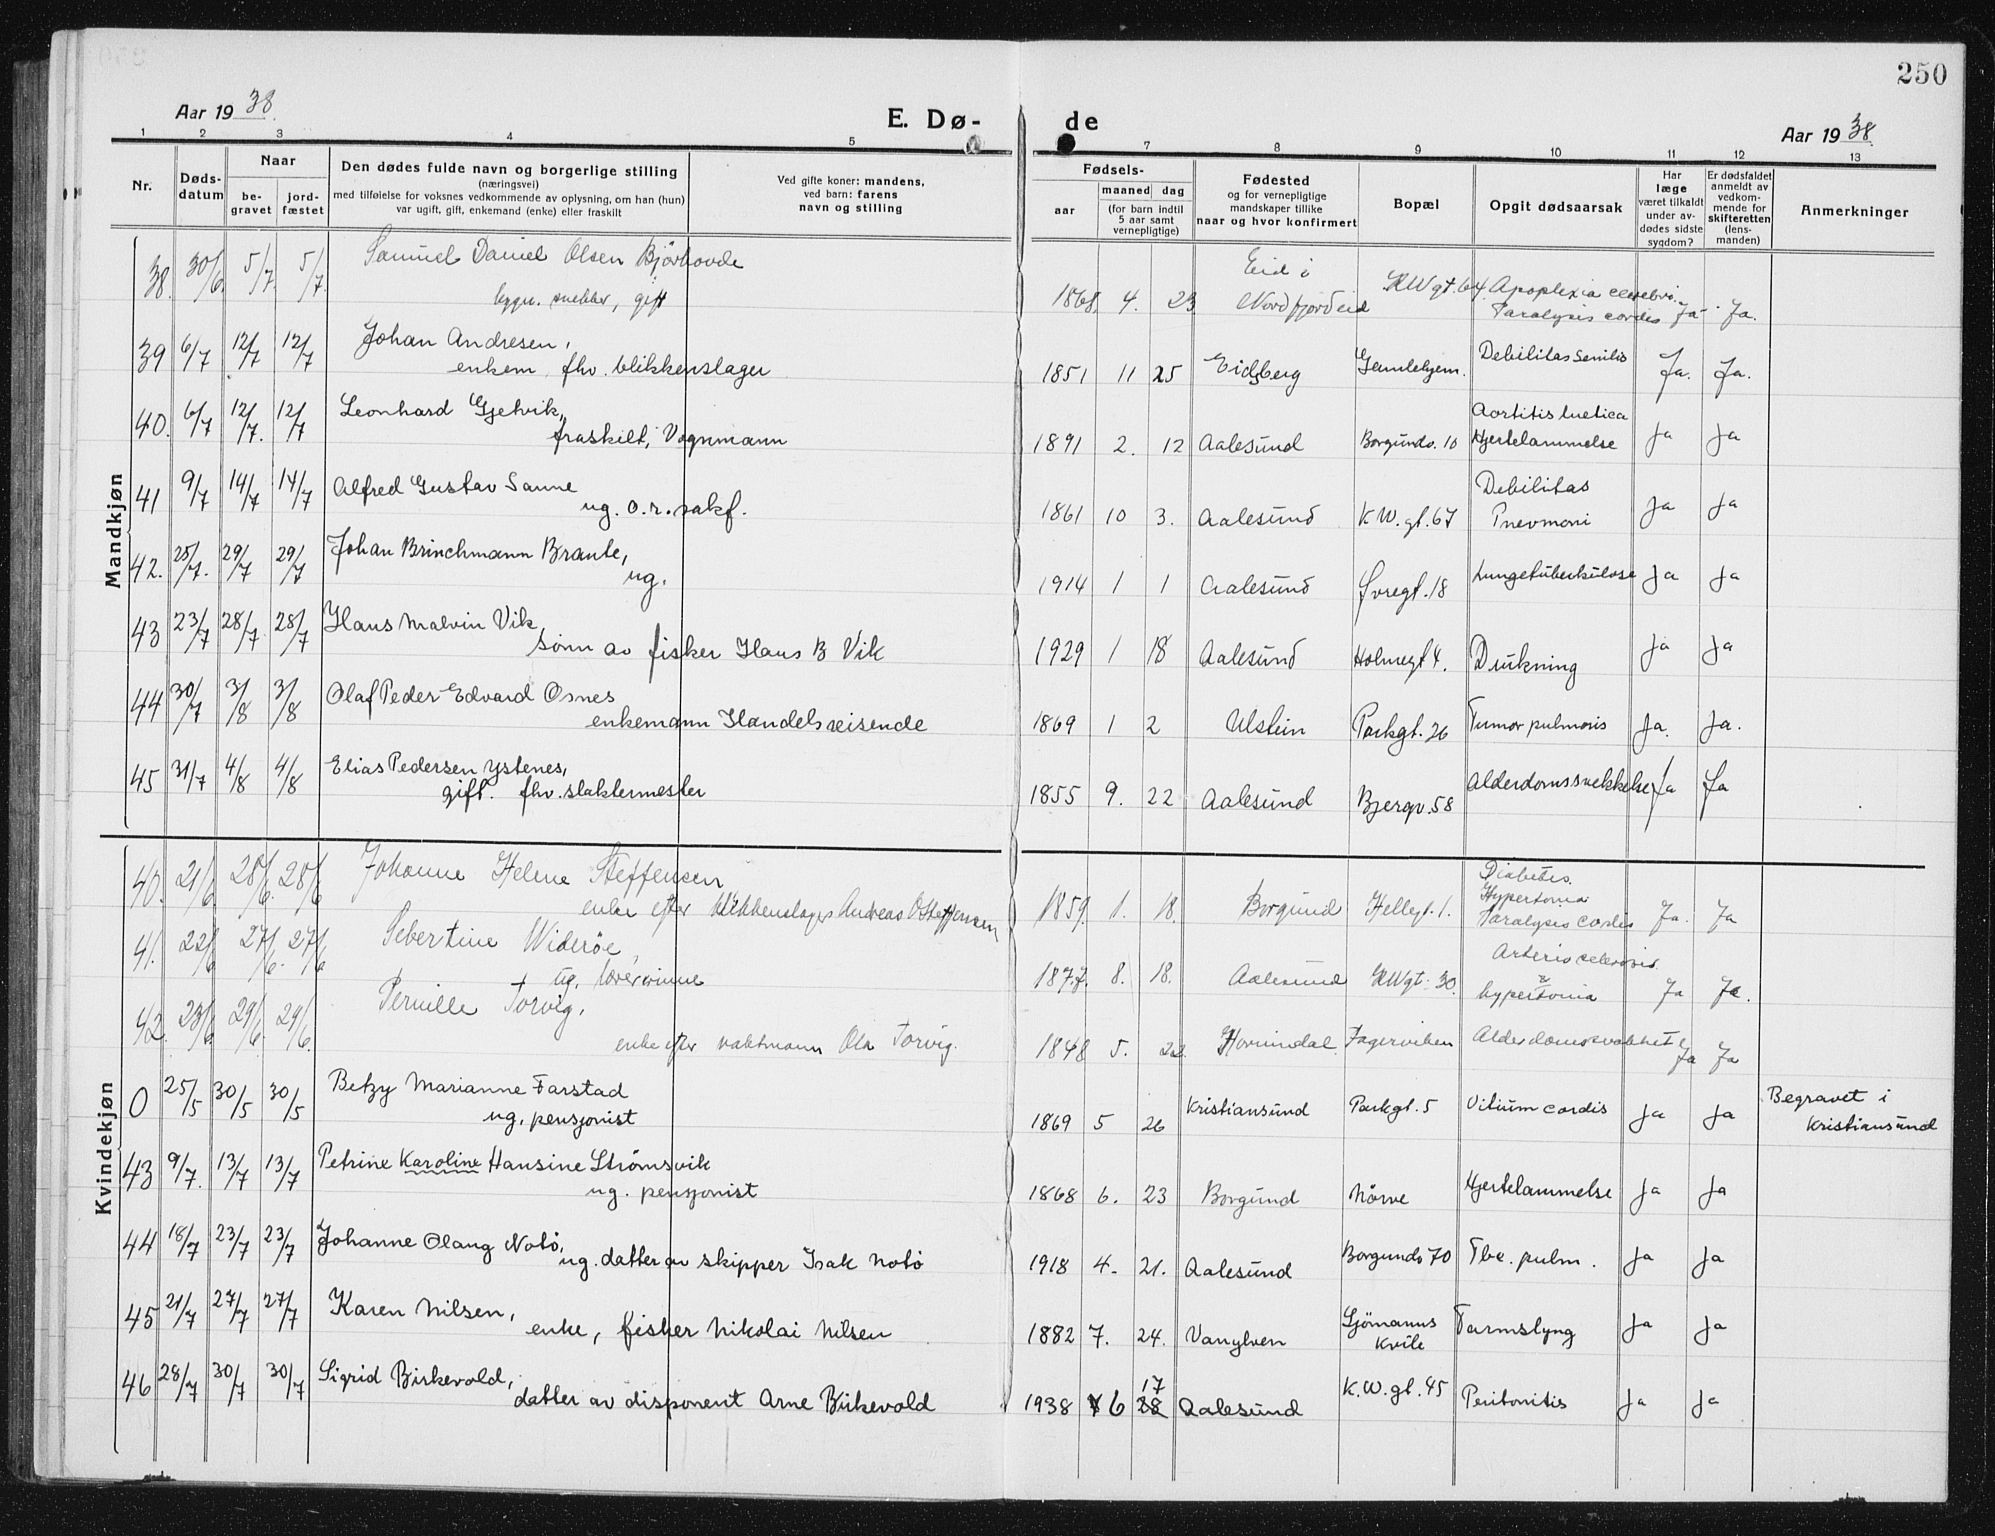 250
Aar 1938.
E. Dø-
de
Aar 1938.
1 2 3 4 5 7 8 9 10 11 12 13
Nr.
Døds-
datum
Naar
be-
gravet
jord-
fæstet
Den dødes fulde navn og borgerlige stilling
(næringsvei)
med tilføielse for voksnes vedkommende av oplysning, om han (hun)
var ugift, gift, enkemand (enke) eller fraskilt
Ved gifte koner: mandens,
ved barn: farens
navn og stilling
Fødsels-
aar
maaned dag
(for barn indtil
5 aar samt
vernepligtige)
Fødested
og for vernepligtige
mandskaper tillike
naar og hvor konfirmert
Bopæl
Opgit dødsaarsak
Har
læge
været tilkaldt
under av-
dødes sidste
sygdom?
Er dødsfaldet
anmeldt av
vedkom-
mende for
skifteretten
(lens-
manden)
Anmerkninger
Mandkjøn
38. 30/6. 5/7. 5/7. Samuel Daniel Olsen Bjørhovde
bygn. snekker, gift
1868. 4. 23 Eid i
Nordfjordeid
KWgt. 64. Apoplexia cerebri.
Paralysis cordis Ja Ja.
39 6/7 12/7 12/7 Johan Andresen,
enkem. fhv. blikkenslager
1851 11 25 Eidsberg Gamlehjem. Debilitas senilis Ja. Ja.
40. 6/7 12/7. 12/7 Leonhard Gjelvik,
fraskilt, Vognmann
1891 2. 12 Aalesund Borgundv. 10 Aortitis luetica
Hjertelammelse Ja Ja
41 9/7 14/7 14/7 Alfred Gustav Sanne
ug. o.r.sakf.
1861 10 3. Aalesund K.W.gt. 67 Debilitas
Pnevmoni Ja Ja
42. 25/7. 29/7 29/7 Johan Brinchmann Brante,
ug.
1914 1 1 Aalesund Øvregt. 18 Lungetuberkulose Ja Ja
43 23/7 28/7 28/7 Hans Malvin Vik
sønn av fisker Hans B Vik
1929 1 18 Aalesund Holmegt 4. Drukning Ja Ja
44 30/7 3/8 3/8 Olaf Peder Edvard Osnes
enkemann Handelsreisende
1869 1 2 Ulstein Parkgt. 26 Tumor pulmonis Ja. Ja.
45 31/7 4/8 4/8 Elias Pedersen Ystenes,
gift. fhv. slaktermester
1855 9. 22 Aalesund Bjergv. 58 Alderdomssvekkelse Ja Ja
Kvindekjøn
40. 21/6 28/6. 28/6 Johanne Helene Steffensen
enke efter blikkenslager Andreas O Steffensen
1859. 1. 18. Borgund Hellegt. 1. Diabetes.
Hypertonia
Paralysis cordis Ja. Ja
41. 22/6 27/6. 27/6 Sebertine Widerøe,
ug. lærerinne
1877. 8. 18. Aalesund KWgt. 30.
hypertonia Ja Ja.
42. 23/6 29/6. 29/6. Pernille Torvig,
enke efter vaktmann Ola Torvig.
1848 5. 22. Hornindal Fagerviken Ja Ja
0 25/5 30/5 30/5 Betzy Marianne Farstad
ug. pensjonist
1869 5 26 Kristiansund Parkgt. 5 Vitium cordis Ja Ja Begravet i
Kristiansund
43 9/7. 13/7 13/7 Petrine Karoline Hansine Strømsvik
ug. pensjonist
1868 6. 23 Borgund Nørve Hjertelammelse Ja Ja
44 18/7 23/7 23/7 Johanne Olaug Notø,
ug. datter av skipper Isak Notø
1918 4. 21. Aalesund Borgundv 70 Tbc. pulm. Ja Ja
45 21/7 27/7 27/7 Karen Nilsen,
enke, fisker Nikolai Nilsen
1882 7. 24. Vanylven Sjømanns
kvile Tarmslyng Ja Ja
46 28/7 30/7 30/7 Sigrid Birkevold,
datter av disponent Arne Birkevold
1938 6 17
28 Aalesund K.W.gt. 45 Peritonitis Ja Ja